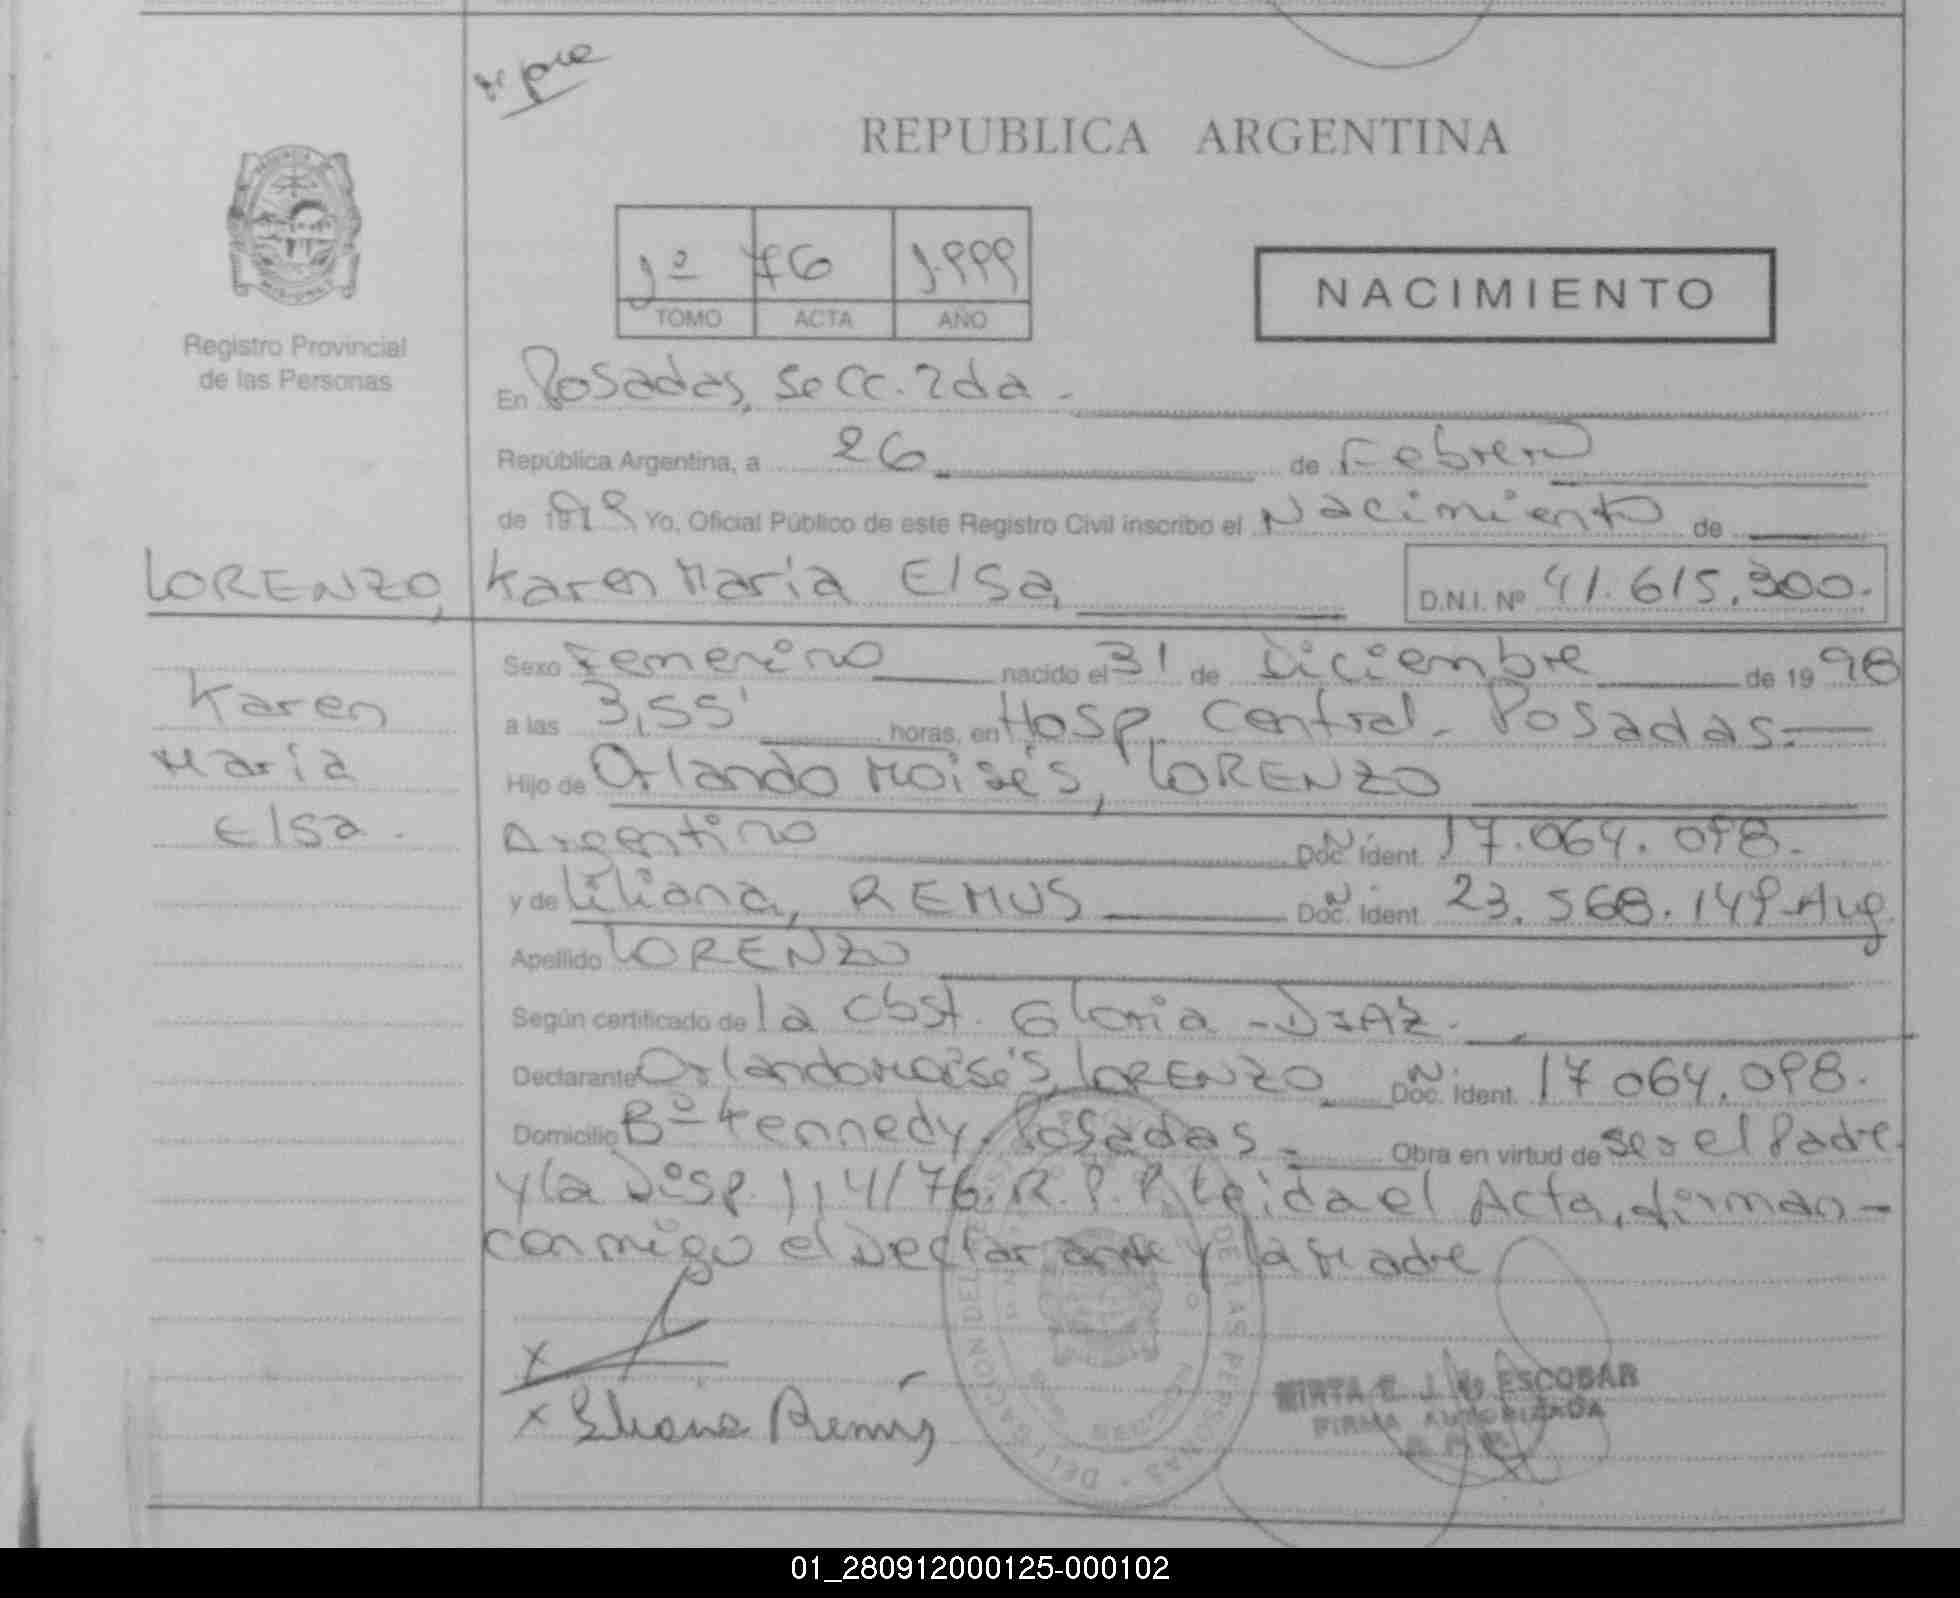 pre
REPUBLICA ARGENTINA
1º 76 1.999
TOMO ACTA AÑO
NACIMIENTO
Registro Provincial
de las Personas
En Posadas, Secc. 2da -
República Argentina, a 26 de Febrero
de 1999 Yo, Oficial Público de este Registro Civil inscribo el Nacimiento de
LORENZO, Karen María Elsa D.N.I. Nº 41.615.300.
Karen
María
Elsa.
Sexo Femenino nacido el 31 de Diciembre de 1998
a las 3,55' horas, en Hosp. Central - Posadas.-
Hijo de Orlando Moisés, LORENZO
Argentino Doc. Ident. 17.064.098.-
y de Liliana, REMUS Doc. Ident. 23.568.149-Arg
Apellido LORENZO
Según certificado de la Obst. Gloria - DIAZ.
Declarante Orlando Moisés, LORENZO Doc. Ident. 17.064.098.
Domicilio Bº Kennedy, Posadas - Obra en virtud de ser el Padre
y la Disp. 114/76. R.P.P. Leida el Acta, firman-
conmigo el Declarante y la Madre
x
x Liliana Remus
DELEGACION DEL DE LAS PERSONAS
MIRTA E. J. ESCOBAR
FIRMA AUTORIZADA
01_280912000125-000102